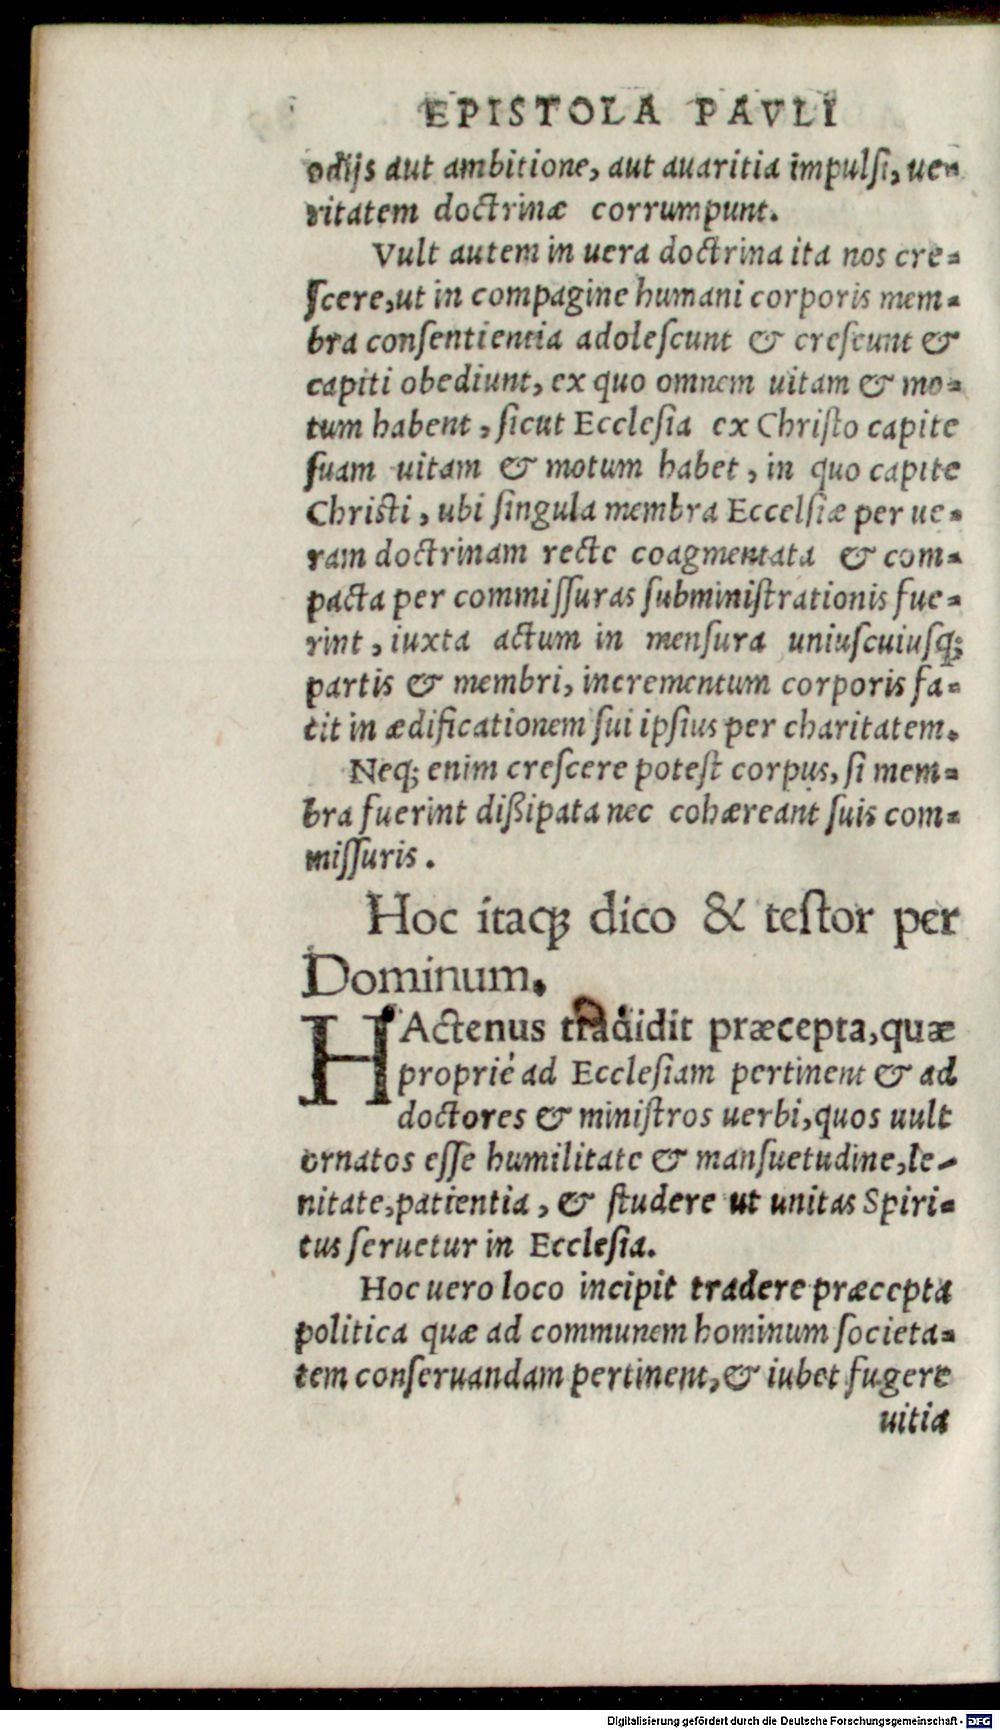 EPISTOLA PAVLI
odijs aut ambitione, aut auaritia impulſi, ue-
ritatem doctrinæ corrumpunt.
Vult autem in uera doctrina ita nos cre-
ſcere, ut in compagine humani corporis mem-
bra conſentientia adoleſcunt & creſcunt &
capiti obediunt, ex quo omnem uitam & mo-
tum habent, ſicut Eccleſia ex Chriſto capite
ſuam uitam & motum habet, in quo capite
Chriſti, ubi ſingula membra Eccelſiæ per ue-
ram doctrinam recte coagmentata & com-
pacta per commiſſuras ſubminiſtrationis fue-
rint, iuxta actum in menſura uniuſcuiuſq;
partis & membri, incrementum corporis fa-
cit in ædificationem ſui ipſius per charitatem.
Neq; enim creſcere poteſt corpus, ſi mem-
bra fuerint dißipata nec cohæreant ſuis com-
miſſuris.
Hoc itaq; dico & teſtor per
Dominum.
HActenus tradidit præcepta, quæ
proprié ad Eccleſiam pertinent & ad
doctores & miniſtros uerbi, quos uult
ornatos eſſe humilitate & manſuetudine, le-
nitate, patientia, & ſtudere ut unitas Spiri-
tus ſeruetur in Eccleſia.
Hoc uero loco incipit tradere præcepta
politica quæ ad communem hominum ſocieta-
tem conſeruandam pertinent, & iubet fugere
uitia
Digitalisierung gefördert durch die Deutsche Forschungsgemeinschaft - DFG